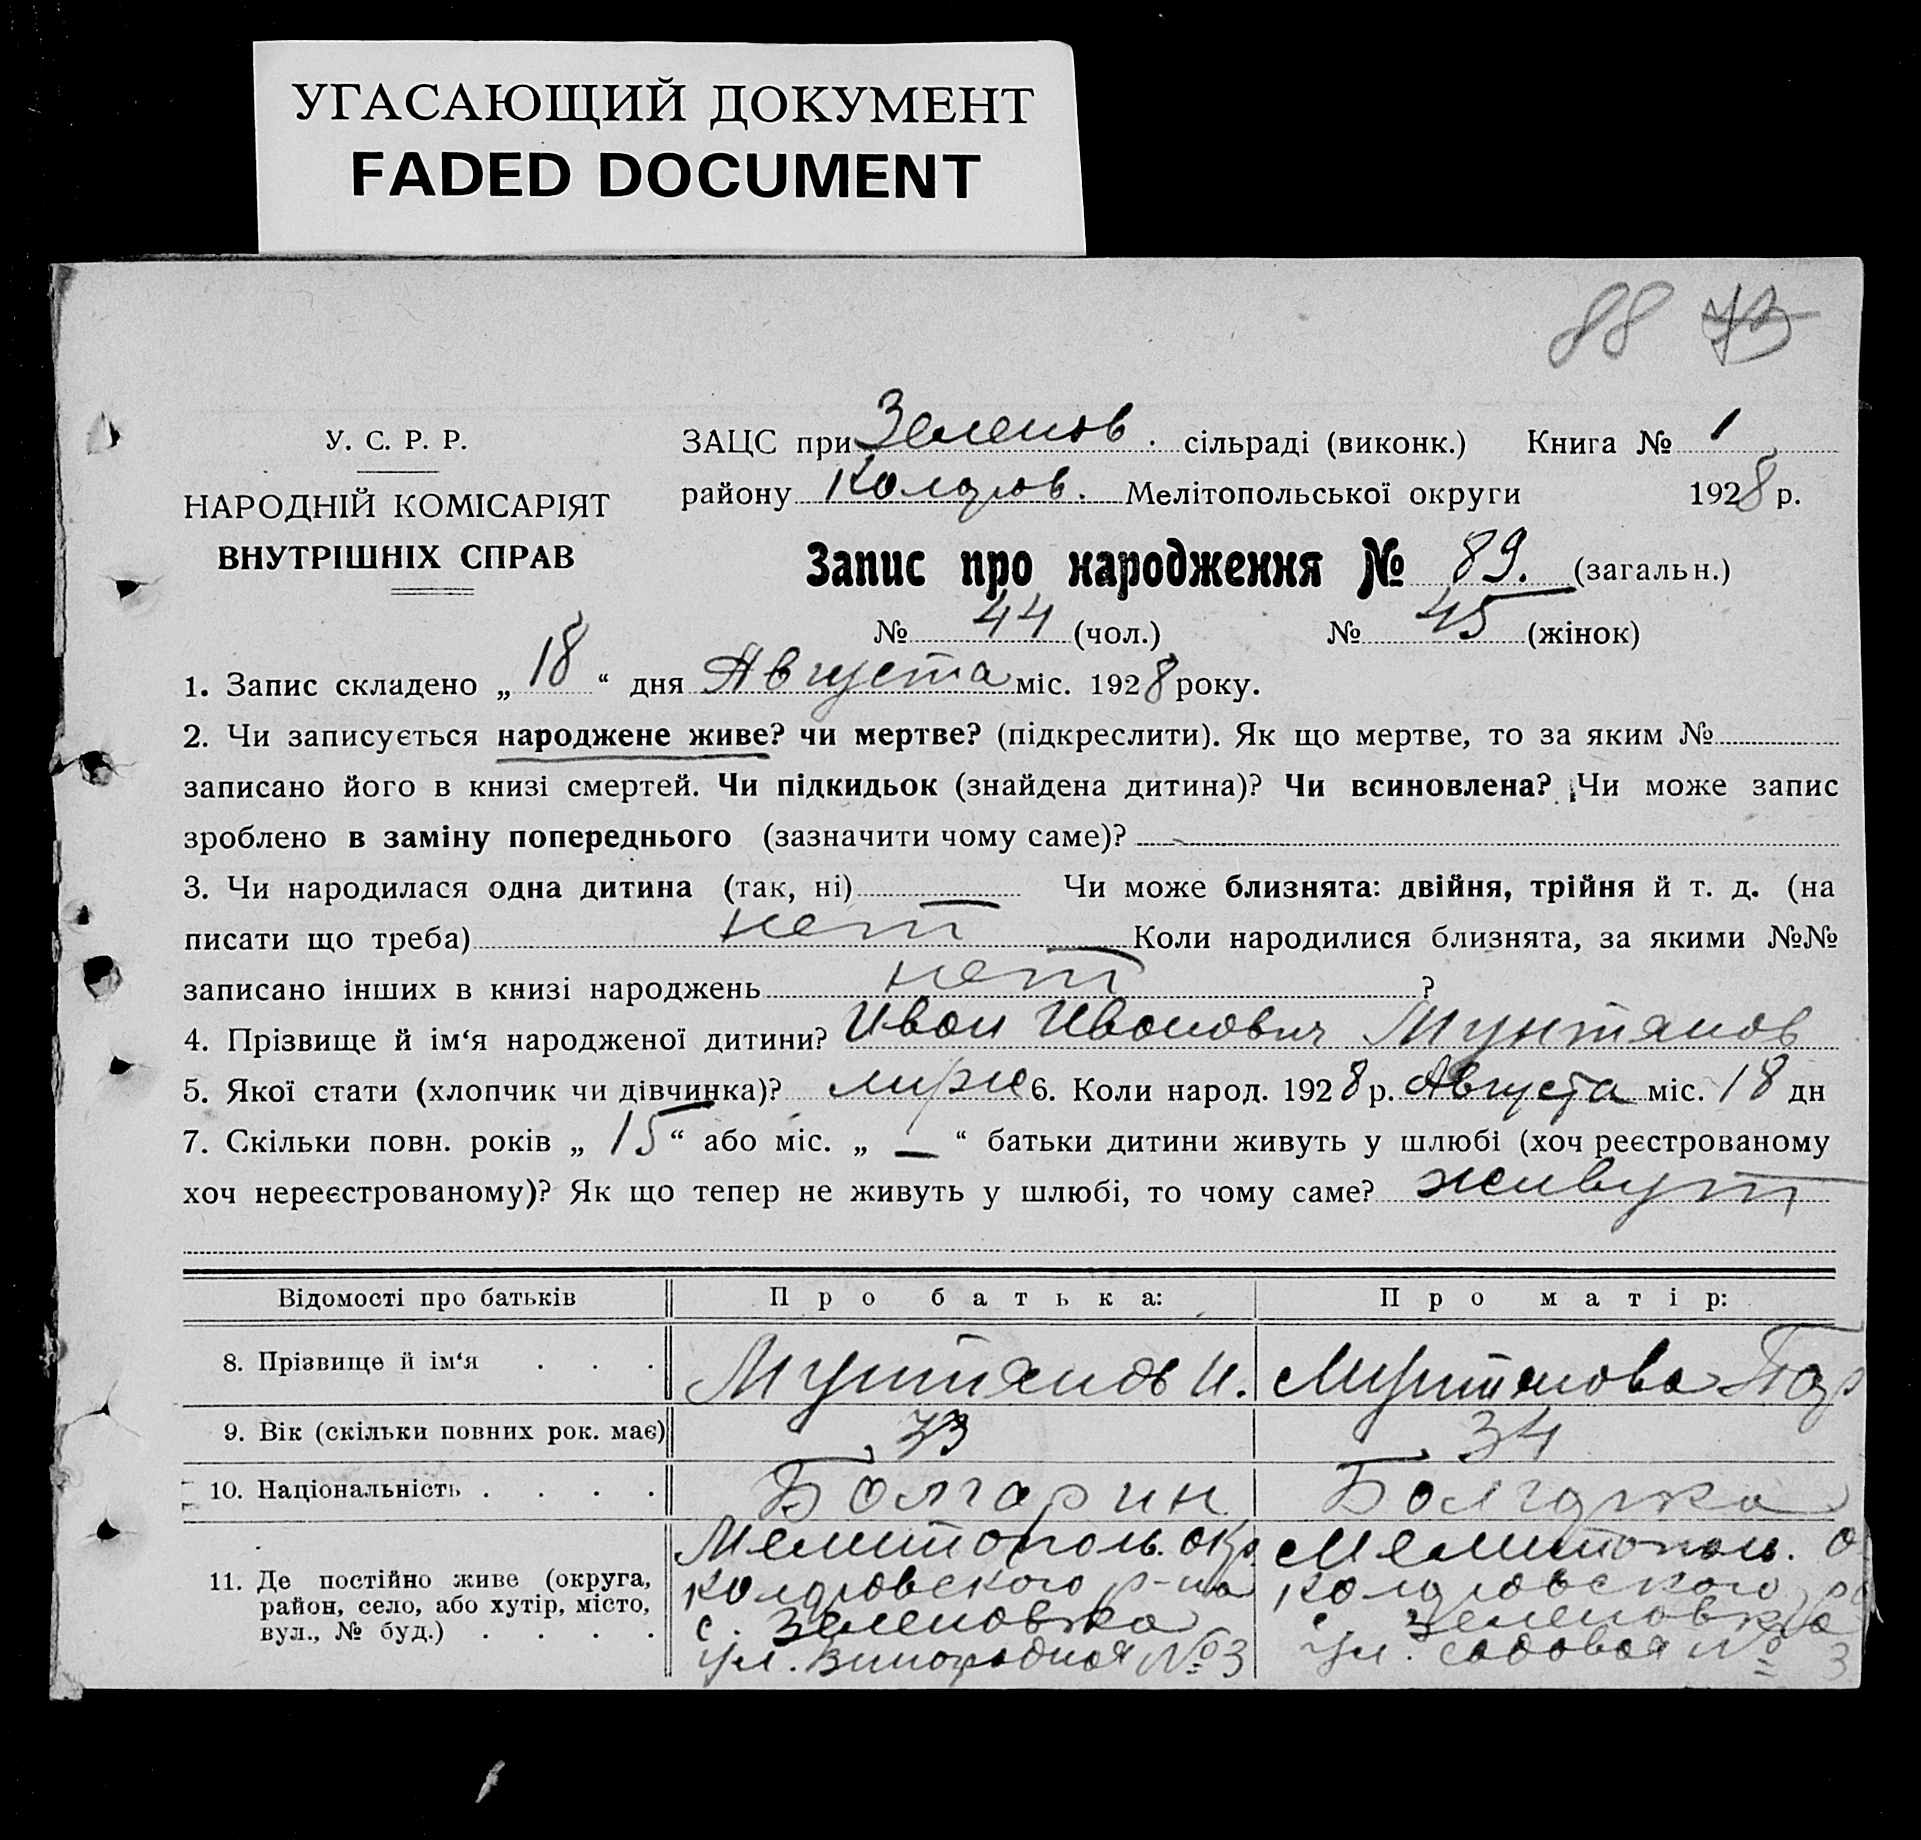 УГАСАЮЩИЙ ДОКУМЕНТ
FADED DOCUMENT
88 73
У. С. Р. Р.
НАРОДНІЙ КОМІСАРІЯТ
ВНУТРІШНІХ СПРАВ
ЗАЦС при Зеленов. сільраді (виконк.) Книга № 1
району Коларов. Мелітопольської округи 1928 р.
Запис про народження № 89. (загальн.)
№ 44 (чол.) № 45 (жінок)
1. Запис складено „ 18 “ дня Августа міс. 1928 року.
2. Чи записується народжене живе? чи мертве? (підкреслити). Як що мертве, то за яким №
записано його в книзі смертей. Чи підкидьок (знайдена дитина)? Чи всиновлена? Чи може запис
зроблено в заміну попереднього (зазначити чому саме)?
3. Чи народилася одна дитина (так, ні) Чи може близнята: двійня, трійня й т. д. (на
писати що треба) нет Коли народилися близнята, за якими №№
записано інших в книзі народжень нет ?
4. Прізвище й ім‘я народженої дитини? Иван Иванович Мунтянов
5. Якої стати (хлопчик чи дівчинка)? 6. Коли народ. 1928 р. Августа міс. 18 дн
7. Скільки повн. років „ 15 “ або міс. „ — “ батьки дитини живуть у шлюбі (хоч реєстрованому
хоч нереєстрованому)? Як що тепер не живуть у шлюбі, то чому саме? живут
Відомості про батьків Про батька: Про матір:
8. Прізвище й ім‘я . . . Мунтянов И. Мунтянова
9. Вік (скільки повних рок. має) 33 34
10. Національність . . . . Болгарин Болгарка
11. Де постійно живе (округа, район, село, або хутір, місто, вул., № буд.) . . . .
Мелитополь. окр
Коларовского р-на
с. Зеленовка
ул. Виноградная № 3
Мелитополь. о
Коларовского р
с. Зеленовка
ул. Садовая № 3